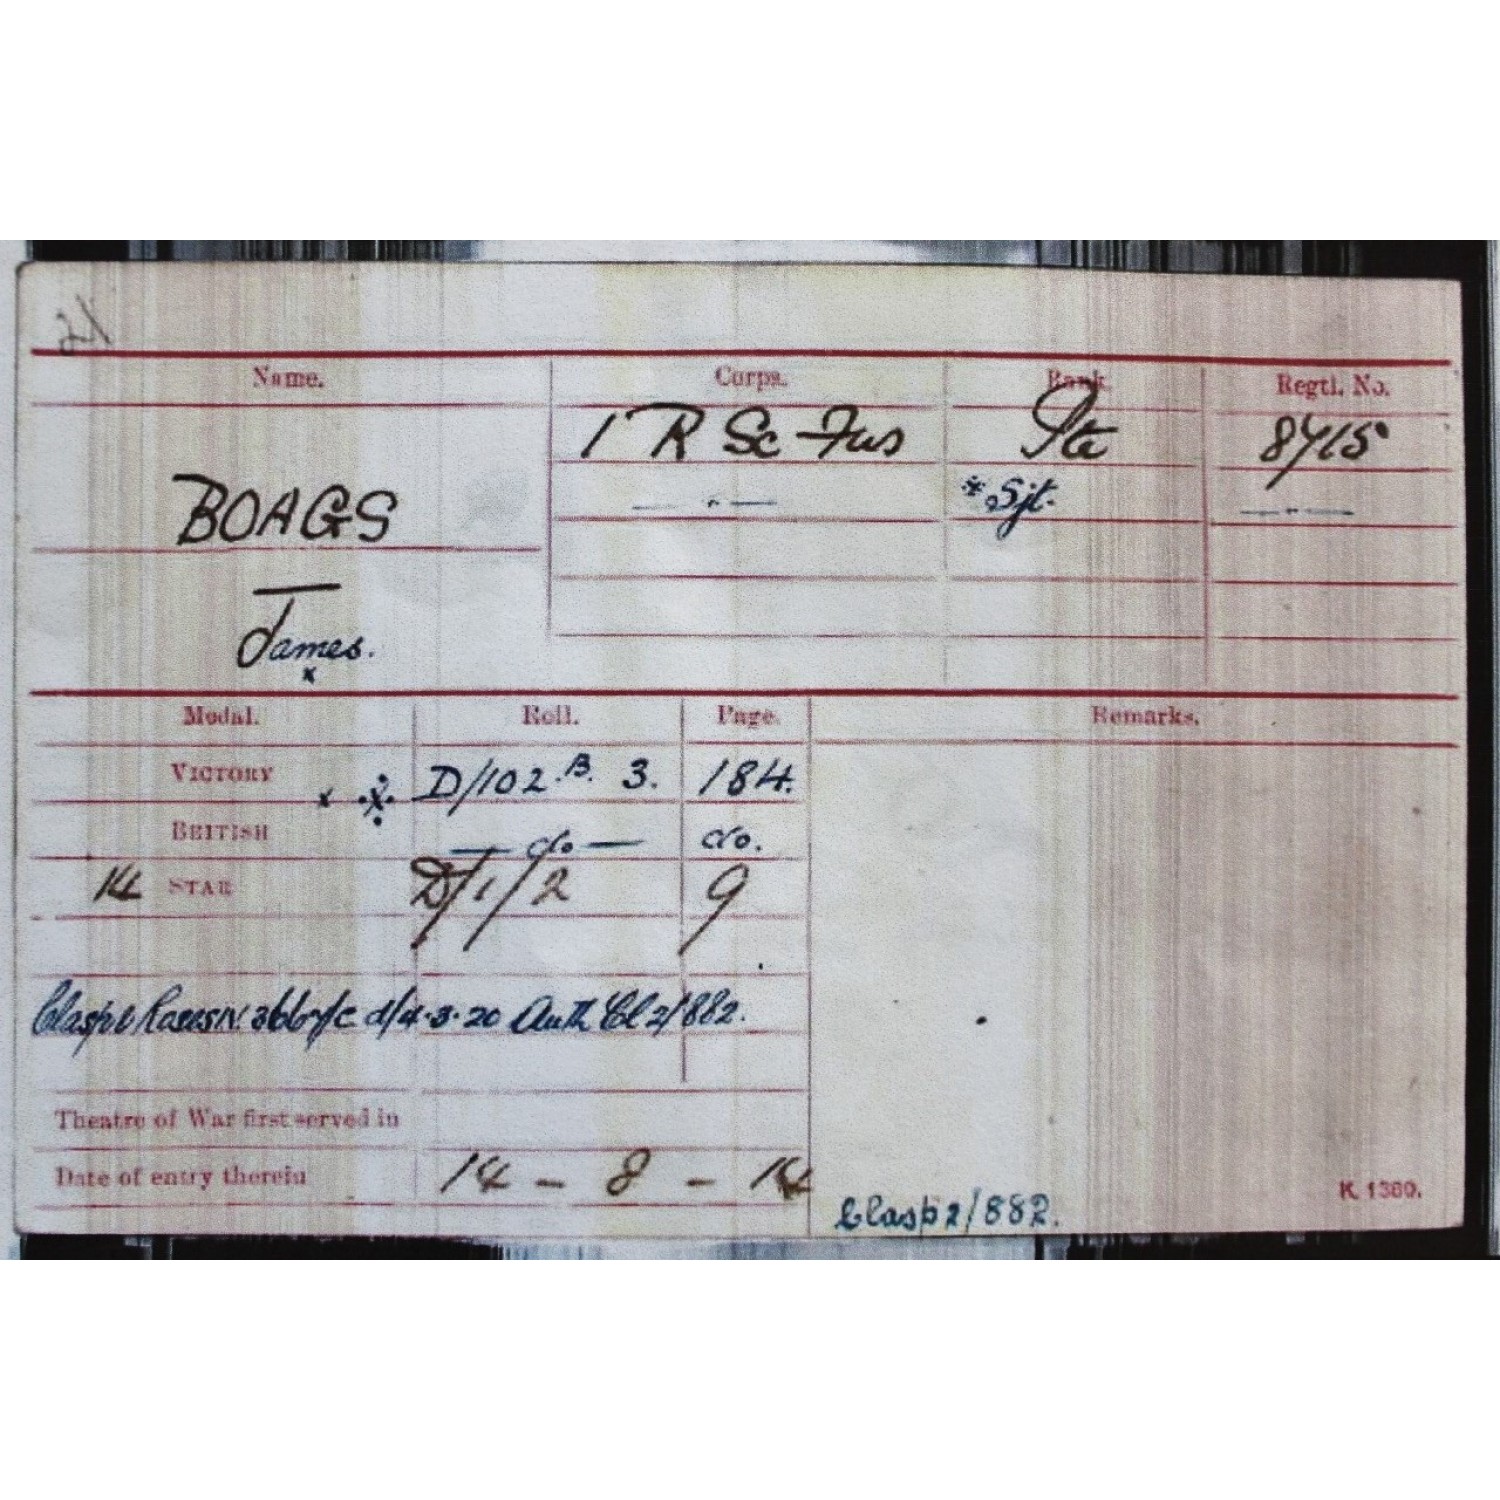 21
Name. Corps. Rank. Regtl. No.
1 R Sc Fus Pte 8415
BOAGS — " — * Sjt. — " —
James.
x
Medal. Roll. Page. Remarks.
VICTORY x D/102.B. 3. 184.
BRITISH — do — do.
14 STAR D/1/2 9
Clasp & Roses IV. d/4.3.20 Auth Cl 2/882.
Theatre of War first served in
Date of entry therein 14 - 8 - 14
Clasp 2/882.
K. 1380.